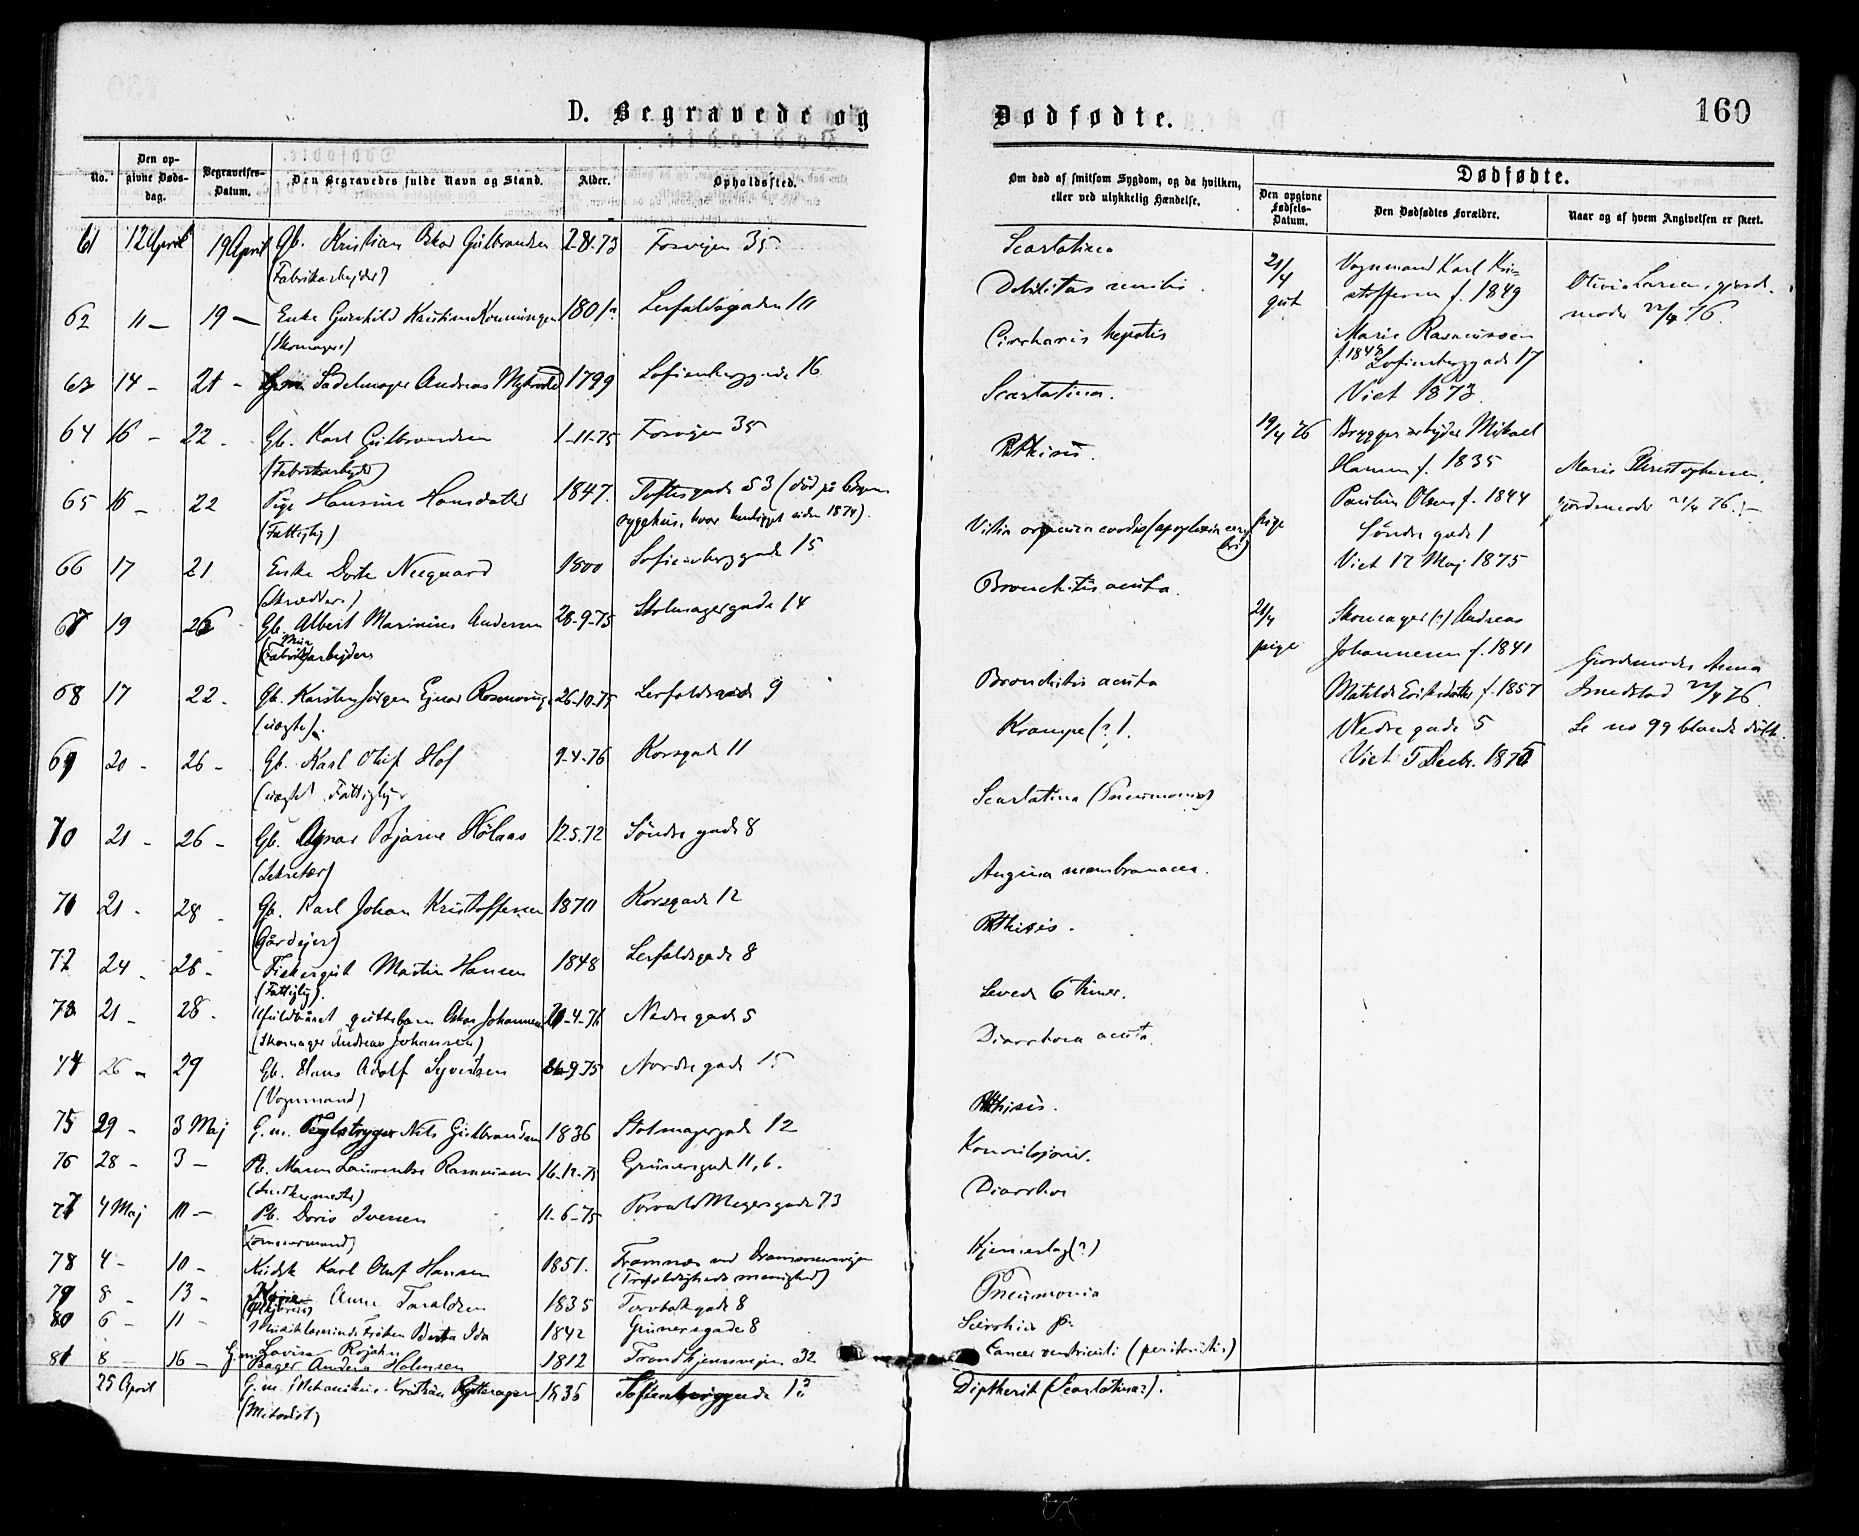 D. Begravede og
Dødfødte.
160
No.
Den opgivne Dødsdag.
Begravelses-Datum.
Den Begravedes fulde Navn og Stand.
Alder.
Opholdssted.
Om død af smitsom Sygdom, og da hvilken, eller ved ulykkelig Hændelse.
Dødfødte.
Den opgivne Fødsels-Datum.
Den Dødfødtes Forældre.
Naar og af hvem Angivelsen er skeet.
61 12 April 19 April Gb. Kristian Oskar Gulbrandsen 73 Fosvejen 35 Scarlatina
(Fabrikarbejder)
62 11 — 19 — Enke Gunhild Kristine 1801 Lerfaldsgaden 10 Debilitas senilis
(Skomager)
63 14 - 21 - Sadelmager Andreas 1799 Sofienberggade 16 Cirrhosis hepatis
64 16 - 22 - Gb. Karl Gulbrandsen 1-11-75 Fosvejen 35 Scarlatina.
(Fabrikarbejder)
65 16 - 22 Pige Hansine Hansdatter 1847. Toftesgade 53 (død på Byens Phthisis.
(Fattiglig) sygehus, hvor henligget siden 1874).
66 17 21 Enke Dorte Neegaard 1800 Sofienberggade 15 Vitia organica cordis (apoplexia cerebri)
(Skrædder)
67 19 26 Gb. Albert Marinius Andersen 28-9-75 Stolmagergade 14 Bronchitis acuta.
(Fabrikarbejder)
68 17 22 - Gb. Karsten Jørgen Ejnar 26-10-75 Lerfaldsgade 9 Bronchitis acuta
(uægte).
69 20 - 26 - Gb. Karl Oluf Hof 9-4-76 Korsgade 11 Krampe (?).
(uægte) Fattiglig
70 21 - 26 - Gb. Agnar Bjarne Hølaas 12.5.72 Søndre gade 8 Scarlatina (Pneumonia)
(Sekretær)
71 21 - 28 - Gb. Karl Johan Kristoffersen 1870 Korsgade 12 Angina membranacea.
(Gårdejer)
72 24 - 28 - Fiskergut Martin Hansen 1848 Lerfaldsgade 8 Phthisis.
(Fattiglig).
73 21 - 28 - Ufuldbåret guttebarn Oskar Johannesen 4-76 Nedre gade 5 Levede 6 timer.
(Skomager Andreas Johansen)
74 26 - 29 Gb. Hans Adolf Syvertsen 9 75 Nordre gade 15 Diarrhoea acuta.
(Vognmand)
75 29 - 3 Maj G.m. Nils Gulbrandsen 1836 Stolmagergade 12 Phthisis.
76 28 - 3 — Pb. Maren Laurentse Rasmussen 16-12-75 Grünersgade 11, 6. Konvulsjoner.
77 4 Maj 10 — Pb. Doris Iversen 11-6-75 Torvald Meyersgade 73 Diarrhoe
(Tømmermand)
78 4 - 10 - Karl Oluf Hansen 1851. Framnæs ved Drammensvejen Hjerneslag (?)
(Trefoldigheds menighed)
79 8 - 13 - Anne Taraldsen 1835 Torvbakgade 8 Pneumonia
80 6 - 11 - Musiklærerinde Frøken Berta Ida 1842 Grünersgade 8
Lovise Rojahn
81 8 16 - G.m. Bager Anders Holmsen 1812 Trondhjemsvejen 32 Cancer ventriculi (peritonitis)
25 April G.m. Mekanikus Kristian 1836 Sofienberggade Diphtherit (Scarlatina?).
(Metodist)
21/4
gut
Vognmand Karl Kri-
stoffersen f. 1849
Marie Rasmussen
f. 1849 Sofienberggade 17
Viet 1873.
Olivia Larsen, gjord-
moder 22/4 76.
19/4 76
pige
Bryggeriarbejder Mikael
Hansen f. 1835
Pauline Olsen f. 1844
Søndre gade 1
Viet 17 Maj 1875
Marie Christophersen,
Jordemoder 21/4 76.
21/4
pige
Skomager (?) Andreas
Johannesen f. 1841
Matilde Eriksdatter f. 1857
Nedre gade 5
Viet Decbr. 187
Gjordemoder Anna
Smedstad 22/4 76.
Se no 99 blandt døbte.